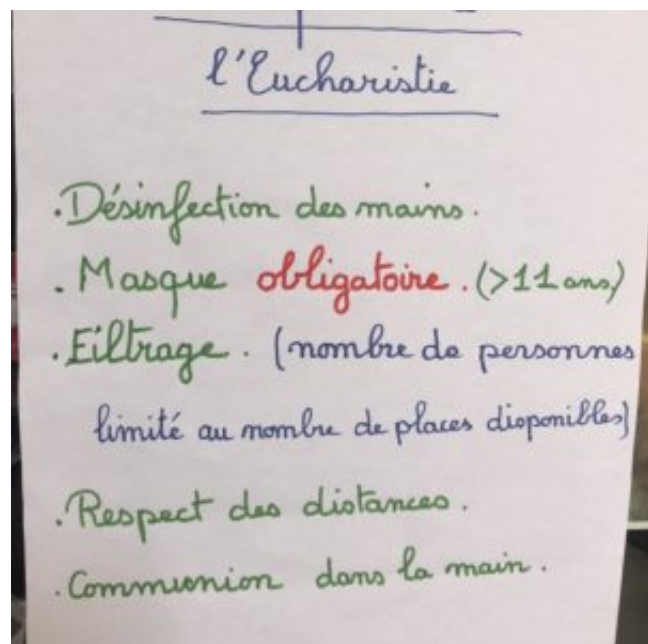 l'Eucharistie
. Désinfection des mains.
. Masque obligatoire. (>11 ans)
. Filtrage. (nombre de personnes
limité au nombre de places disponibles)
. Respect des distances.
. Communion dans la main.